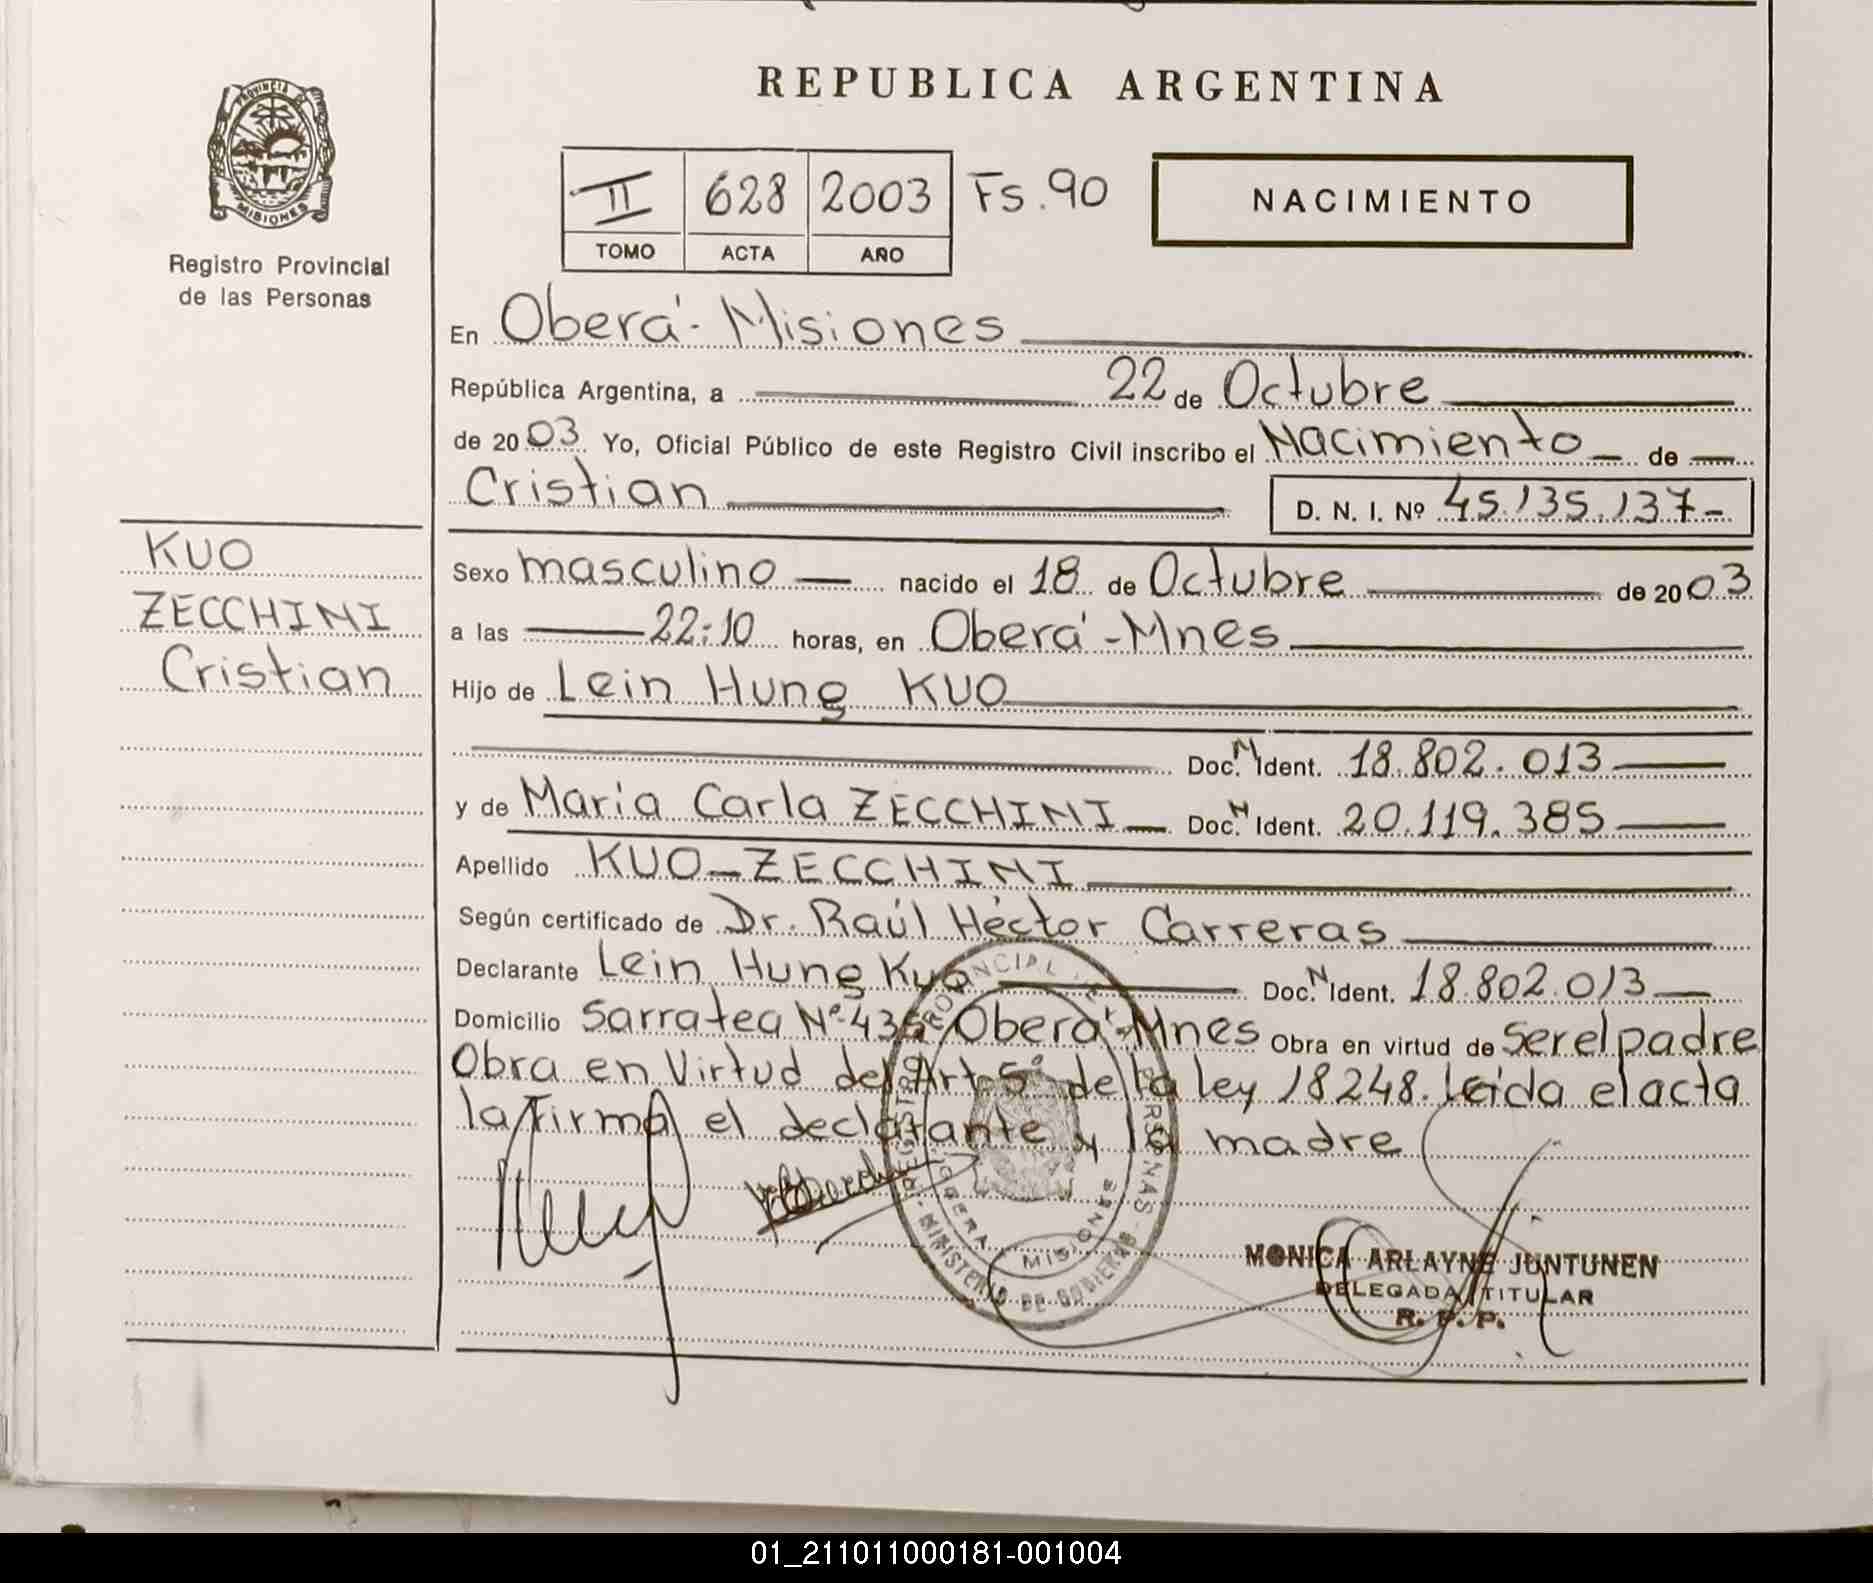 PROVINCIA DE
MISIONES
Registro Provincial
de las Personas
KUO
ZECCHINI
Cristian
REPUBLICA ARGENTINA
II 628 2003 Fs. 90
TOMO ACTA AÑO
NACIMIENTO
En Oberá - Misiones
República Argentina, a 22 de Octubre
de 2003 Yo, Oficial Público de este Registro Civil inscribo el Nacimiento de
Cristian D. N. I. Nº 45.135.137-
Sexo masculino nacido el 18 de Octubre de 2003
a las 22:10 horas, en Oberá - Mnes
Hijo de Lein Hung KUO
Doc. N Ident. 18.802.013
y de Maria Carla ZECCHINI Doc. N Ident. 20.119.385
Apellido KUO-ZECCHINI
Según certificado de Dr. Raúl Héctor Carreras
Declarante Lein Hung Kuo Doc. N Ident. 18.802.013
Domicilio Sarratea Nº 435 Oberá - Mnes Obra en virtud de ser el padre
Obra en Virtud del Art 5º de la ley 18248. Leida el acta
la firma el declarante y la madre
REGISTRO PROVINCIAL DE LAS PERSONAS
MINISTERIO DE GOBIERNO
OBERA MISIONES
MONICA ARLAYNE JUNTUNEN
DELEGADA TITULAR
R. P. P.
01_211011000181-001004